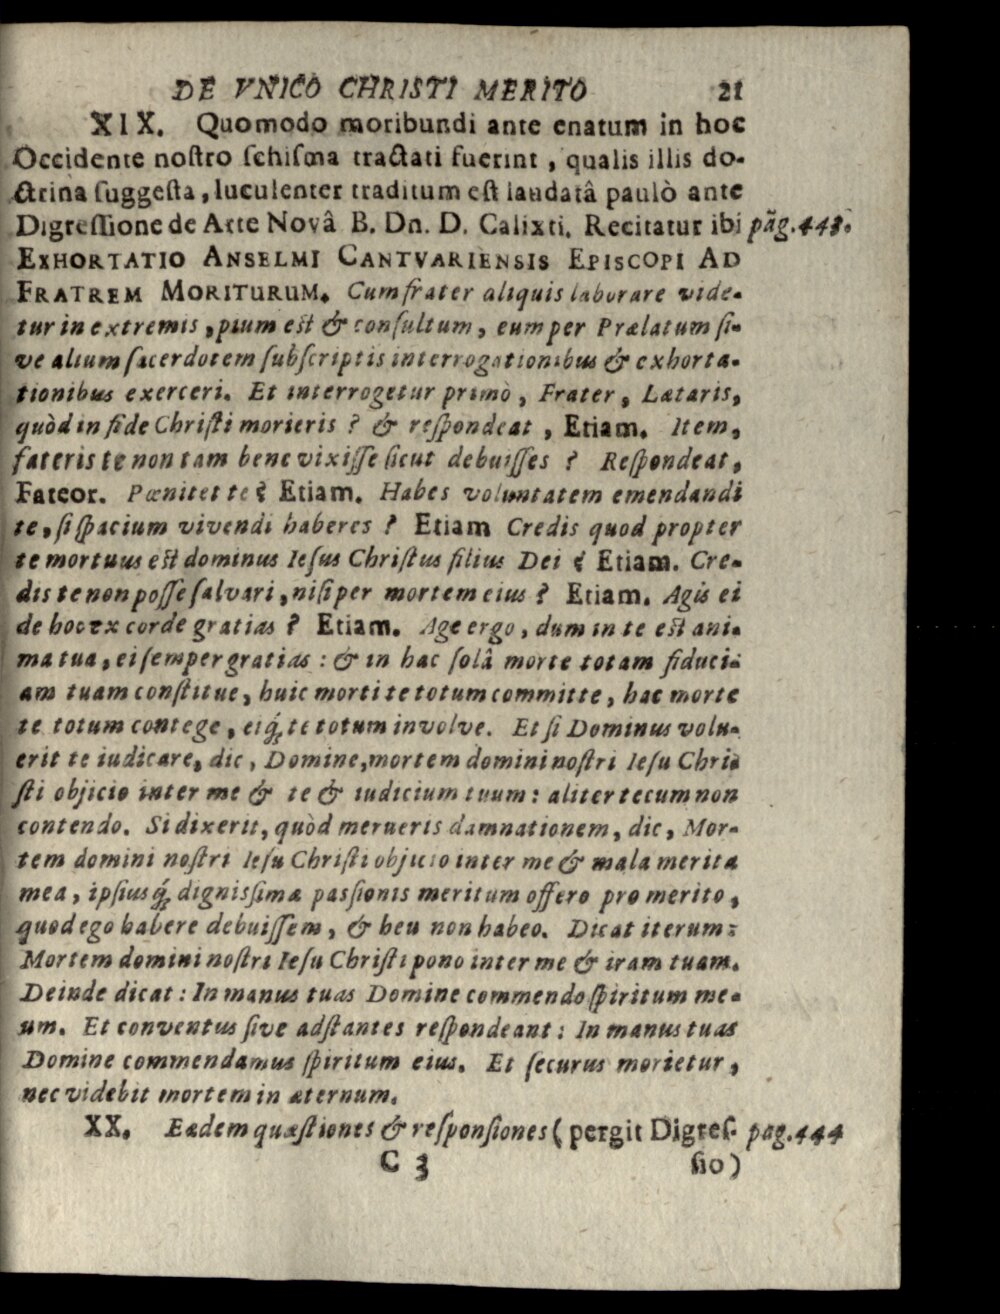 DE VNICO CHRISTI MERITO 21
XIX. Quomodo moribundi ante enatum in hoc
Occidente noſtro ſchiſma tractati fuerint, qualis illis do-
ctrina ſuggeſta, luculenter traditum eſt laudatâ paulò ante
Digreſſione de Arte Novâ B. Dn. D. Calixti. Recitatur ibi pag. 443.
EXHORTATIO ANSELMI CANTVARIENSIS EPISCOPI AD
FRATREM MORITURUM. Cum frater aliquis laborare vide-
tur in extremis, pium est & conſultum, eum per Prælatum ſi-
ve alium ſacerdotem ſubſcriptis interrogationibus & exhorta-
tionibus exerceri. Et interrogetur primò, Frater, Lætaris,
quòd in fide Chriſti morieris? & reſpondeat, Etiam. Item,
fateris te non tam bene vixiſſe ſicut debuiſſes? Reſpondeat,
Fateor. Pœnitet te? Etiam. Habes voluntatem emendandi
te, ſi ſpacium vivendi haberes? Etiam Credis quod propter
te mortuus est dominus Ieſus Chriſtus filius Dei? Etiam. Cre-
dis te non poſſe ſalvari, niſi per mortem eius? Etiam. Agis ei
de hoc ex corde gratias? Etiam. Age ergo, dum in te est ani-
ma tua, ei ſemper gratias: & in hac ſolâ morte totam fiduci-
am tuam conſtitue, huic morti te totum committe, hac morte
te totum contege, eiq́; te totum involve. Et ſi Dominus volu-
erit te iudicare, dic, Domine, mortem domini noſtri Ieſu Chri-
ſti objicio inter me & te & iudicium tuum: aliter tecum non
contendo. Si dixerit, quòd merueris damnationem, dic, Mor-
tem domini noſtri Ieſu Chriſti objicio inter me & mala merita
mea, ipſiusq́; digniſſimæ paſſionis meritum offero pro merito,
quod ego habere debuiſſem, & heu non habeo. Dicat iterum:
Mortem domini noſtri Ieſu Chriſti pono inter me & iram tuam.
Deinde dicat: In manus tuas Domine commendo ſpiritum me-
um. Et conventus ſive adſtantes reſpondeant: In manus tuas
Domine commendamus ſpiritum eius. Et ſecurus morietur,
nec videbit mortem in æternum.
XX. Eædem quæſtiones & reſponſiones (pergit Digreſ- pag. 444
C 3 ſio)